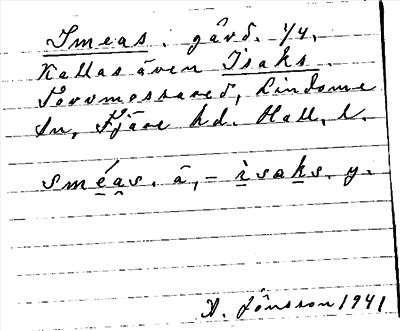 Smeas. gård. 1/4,
Kallas även Isaks.
Torvmossared, Lindome
sn, Fjäre hd. Hall. l.
sméas. â, – isaks. y.
A. Jönsson 1941